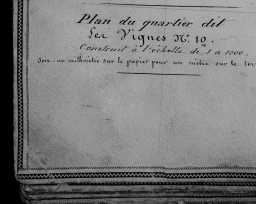 Plan du quartier dit
Les Vignes N.º 10.
Construit à l'échelle de 1 à 1000.
Soit un millimètre sur le papier pour un mètre sur le ter